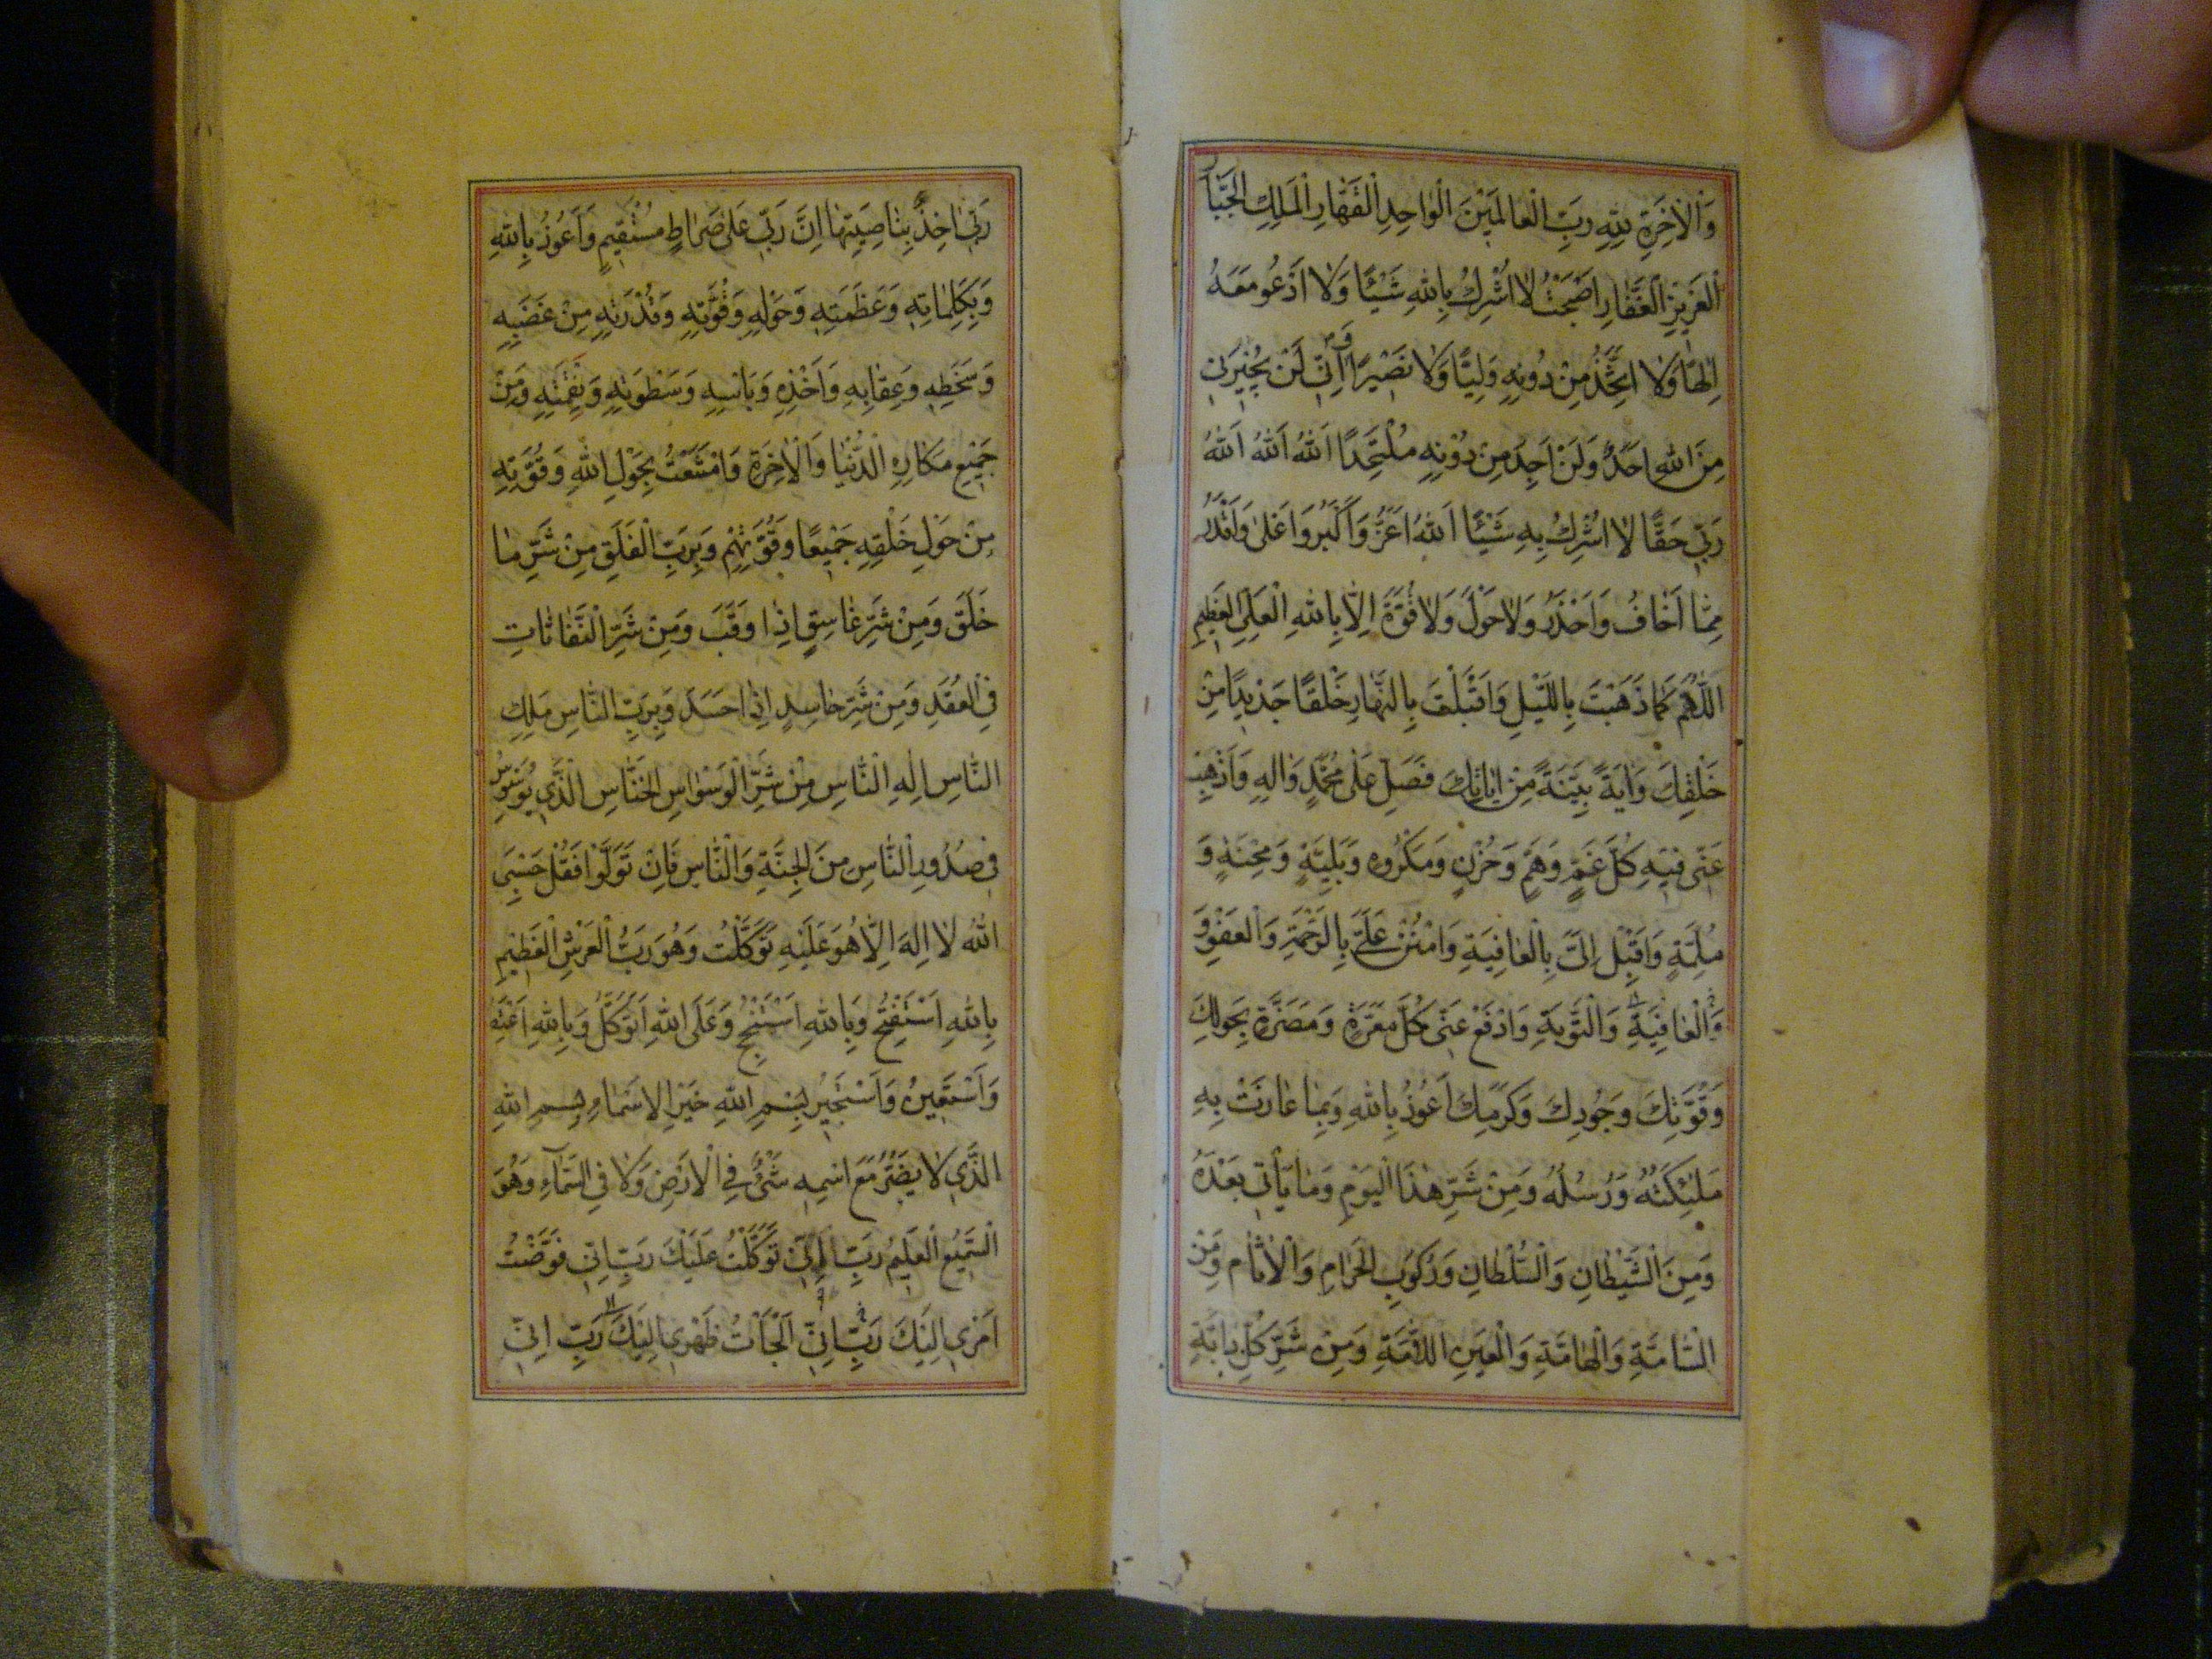 وَالْاٰخِرَةِ لِلّٰهِ رَبِّ الْعٰالَمِيْنَ الْوٰاحِدِ الْقَهّٰارِ الْمَلِكِ الْجَبّٰارِ
الْعَزِيْزِ الْغَفّٰارِ اَصْبَحْتُ لٰا اُشْرِكُ بِاللّٰهِ شَيْئًا وَلٰا اَدْعُو مَعَهُ
اِلٰهًا وَلٰا اَتَّخِذُ مِنْ دُونِهٖ وَلِيًّا وَلٰا نَصِيْرًا وَ اِنّٖي لَنْ يُجِيْرَنٖي
مِنَ اللّٰهِ اَحَدٌ وَلَنْ اَجِدَ مِنْ دُوْنِهٖ مُلْتَحَدًا اَللّٰهُ اَللّٰهُ اَللّٰهُ
رَبّٖي حَقًّا لٰا اُشْرِكُ بِهٖ شَيْئًا اَللّٰهُ اَعَزُّ وَاَكْبَرُ وَاَعْلٰى وَاَقْدَرُ
مِمّٰا اَخٰافُ وَاَحْذَرُ وَلٰا حَوْلَ وَلٰا قُوَّةَ اِلّٰا بِاللّٰهِ الْعَلِيِّ الْعَظِيْمِ
اَللّٰهُمَّ كَمٰا ذَهَبْتَ بِاللَّيْلِ وَاَقْبَلْتَ بِالنَّهٰارِ خَلْقًا جَدٖيدًا مِنْ
خَلْقِكَ وَاٰيَةً بَيِّنَةً مِنْ اٰيٰاتِكَ فَصَلِّ عَلٰى مُحَمَّدٍ وَاٰلِهٖ وَاَذْهِبْ
عَنّٖى فٖيهِ كُلَّ غَمٍّ وَهَمٍّ وَحُزْنٍ وَمَكْرُوهٍ وَبَلِيَّةٍ وَمِحْنَةٍ وَ
مُلِمَّةٍ وَاَقْبِلْ اِلَيَّ بِالْعٰافِيَةِ وَامْنُنْ عَلَيَّ بِالرَّحْمَةِ وَالْعَفْوِ وَ
وَالْعٰافِيَةِ وَالتَّوْبَةِ وَادْفَعْ عَنّٖى كُلَّ مَعَرَّةٍ وَمَضَرَّةٍ بِحَوْلِكَ
وَقُوَّتِكَ وَجُودِكَ وَكَرَمِكَ اَعُوْذُ بِاللّٰهِ وَبِمٰا عٰاذَتْ بِهٖ
مَلٰئِكَتُهُ وَرُسُلُهُ وَمِنْ شَرِّ هٰذَا الْيَوْمِ وَمٰا يَأْتٖي بَعْدَهُ
وَمِنَ الشَّيْطٰانِ وَالسُّلْطٰانِ وَرُكُوْبِ الْحَرٰامِ وَالْاٰثٰامِ وَمِنْ
السّٰامَّةِ وَالْهٰامَّةِ وَالْعَيْنِ اللّٰامَّةِ وَمِنْ شَرِّ كُلِّ دٰابَّةٍ
رَبّٖي اٰخِذٌ بِنٰاصِيَتِهٰا اِنَّ رَبّٖي عَلٰى صِرٰاطٍ مُسْتَقٖيمٍ وَاَعُوْذُ بِاللّٰهِ
وَبِكَلِمٰاتِهٖ وَعَظَمَتِهٖ وَحَوْلِهٖ وَقُوَّتِهٖ وَقُدْرَتِهٖ مِنْ غَضَبِهٖ
وَسَخَطِهٖ وَعِقٰابِهٖ وَاَخْذِهٖ وَبَأْسِهٖ وَسَطْوَتِهٖ وَنِقْمَتِهٖ وَمِنْ
جَمٖيعِ مَكٰارِهِ الدُّنْيٰا وَالْاٰخِرَةِ وَامْتَنَعْتُ بِحَوْلِ اللّٰهِ وَقُوَّتِهٖ
مِنْ حَوْلِ خَلْقِهٖ جَمٖيعًا وَقُوَّتِهِمْ وَبِرَبِّ الْفَلَقِ مِنْ شَرِّ مٰا
خَلَقَ وَمِنْ شَرِّ غٰاسِقٍ اِذٰا وَقَبَ وَمِنْ شَرِّ النَّفّٰاثٰاتِ
فِي الْعُقَدِ وَمِنْ شَرِّ حٰاسِدٍ اِذٰا حَسَدَ وَبِرَبِّ النّٰاسِ مَلِكِ
النّٰاسِ اِلٰهِ النّٰاسِ مِنْ شَرِّ الْوَسْوٰاسِ الْخَنّٰاسِ الَّذٖي يُوَسْوِسُ
فٖي صُدُورِ النّٰاسِ مِنَ الْجِنَّةِ وَالنّٰاسِ فَاِنْ تَوَلَّوْا فَقُلْ حَسْبِيَ
اللّٰهُ لٰا اِلٰهَ اِلّٰا هُوَ عَلَيْهِ تَوَكَّلْتُ وَهُوَ رَبُّ الْعَرْشِ الْعَظٖيمِ
بِاللّٰهِ اَسْتَفْتِحُ وَبِاللّٰهِ اَسْتَنْجِحُ وَعَلَى اللّٰهِ اَتَوَكَّلُ وَبِاللّٰهِ
وَاَسْتَعٖينُ وَاَسْتَجٖيرُ بِسْمِ اللّٰهِ خَيْرِ الْاَسْمٰاءِ بِسْمِ اللّٰهِ
الَّذٖي لٰا يَضُرُّ مَعَ اسْمِهٖ شَيْءٌ فِي الْاَرْضِ وَلٰا فِي السَّمٰآءِ وَهُوَ
السَّمٖيعُ الْعَلٖيمُ رَبِّ اِنّٖي تَوَكَّلْتُ عَلَيْكَ رَبِّ اِنّٖي فَوَّضْتُ
اَمْرٖي اِلَيْكَ رَبِّ اِنّٖي اَلْجَأْتُ ظَهْرٖي اِلَيْكَ رَبِّ اِنّٖي